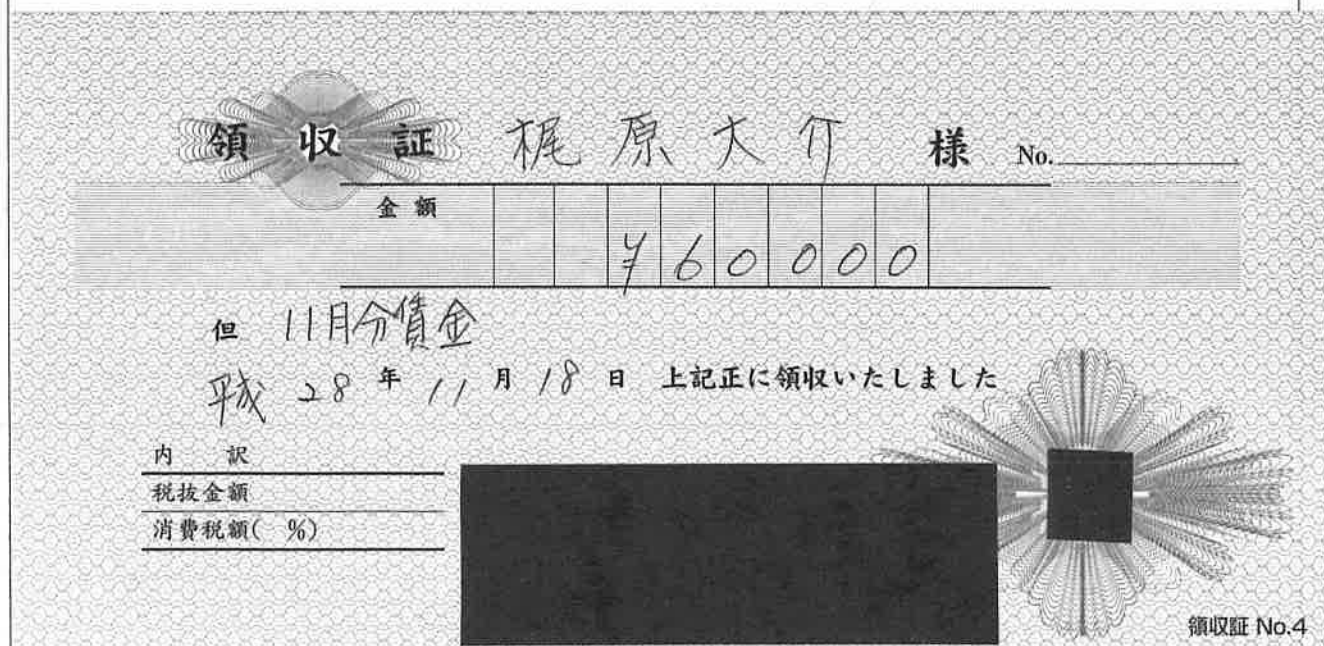 領収証 梶原大介 様 No.
金額 ¥60000
但 11月分賃金
平成 28 年 11 月 18 日 上記正に領収いたしました
内 訳
税抜金額
消費税額( %)
領収証 No.4